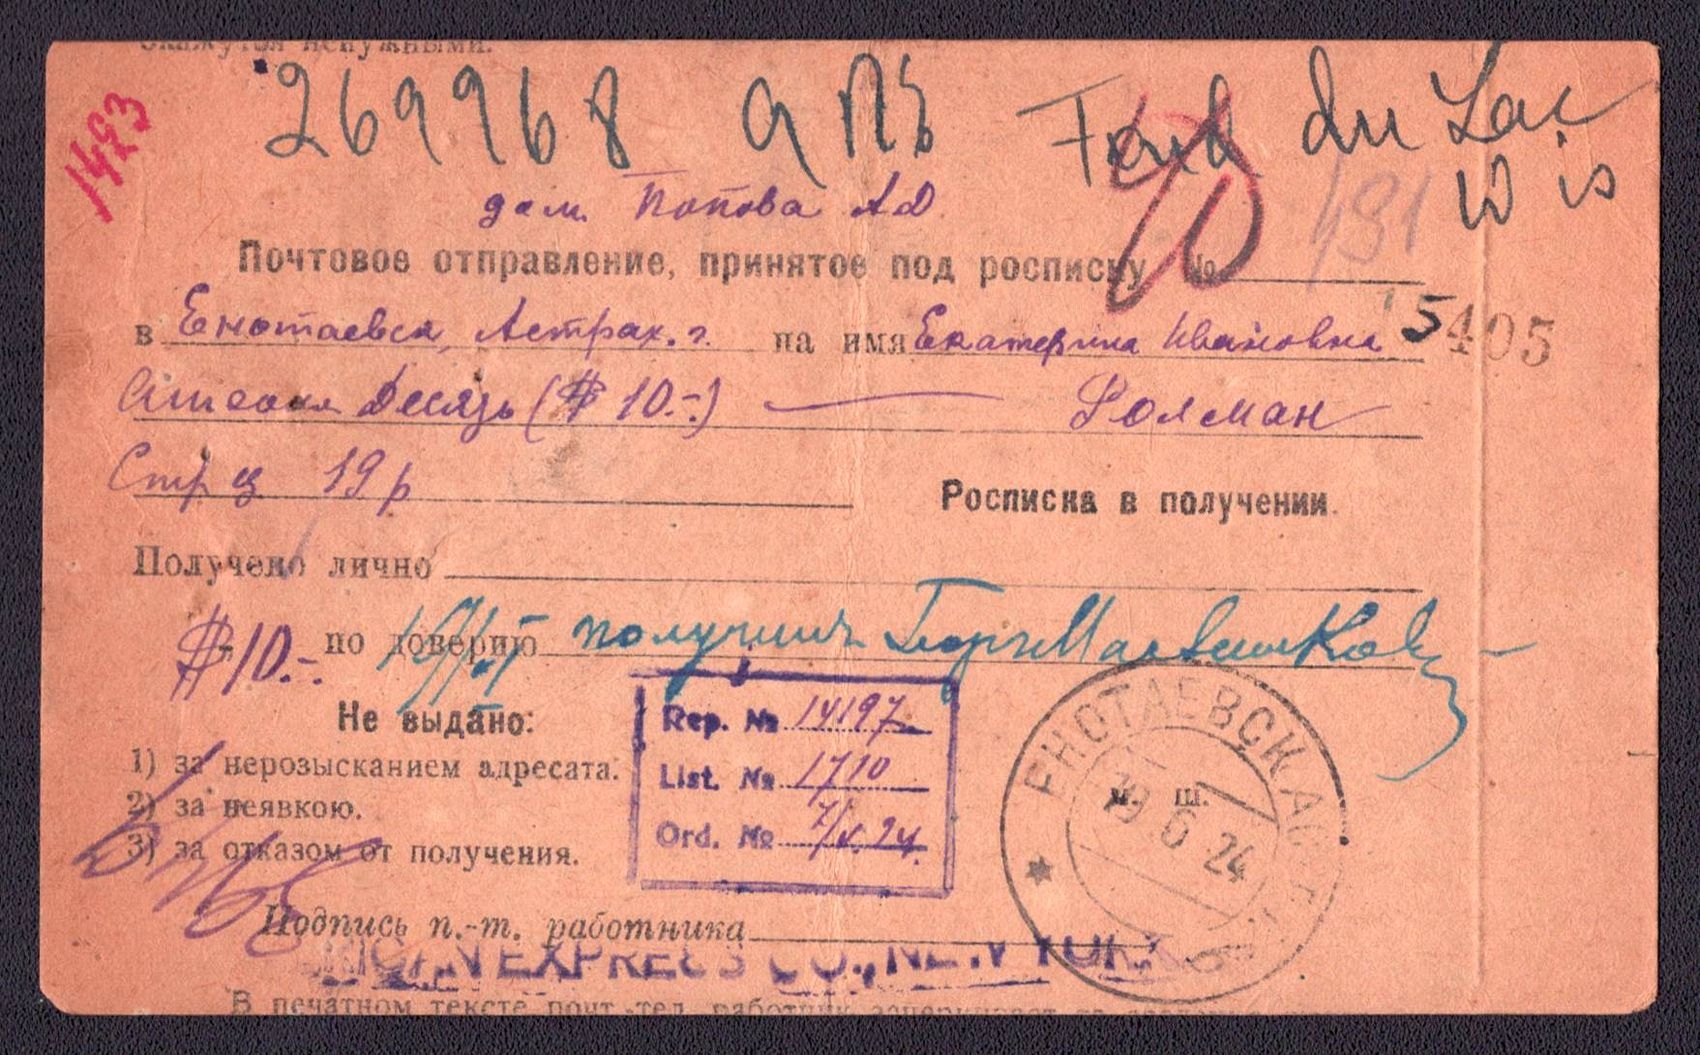 окажутся ненужными.
1423
269968 Fond du Lac
Wis
дом. Попова А Д
40
Почтовое отправление, принятое под росписку №
в Енотаевск, Астрах. г. на имя Екатерина Ивановна
5405
($ 10.-) Фолман
19 р
Росписка в получении.
Получено лично
$ 10.- по доверию получил
Не выдано:
1) за нерозысканием адресата.
2) за неявкою.
3) за отказом от получения.
Rep. № 14197
List. № 1710
Ord. № 7/V.24.
ЕНОТАЕВСК АСТР
м. ш.
19 6 24
Подпись п.-т. работника
EXPRESS CO., NEW YORK
В печатном тексте почт.-тел. работник зачеркивает